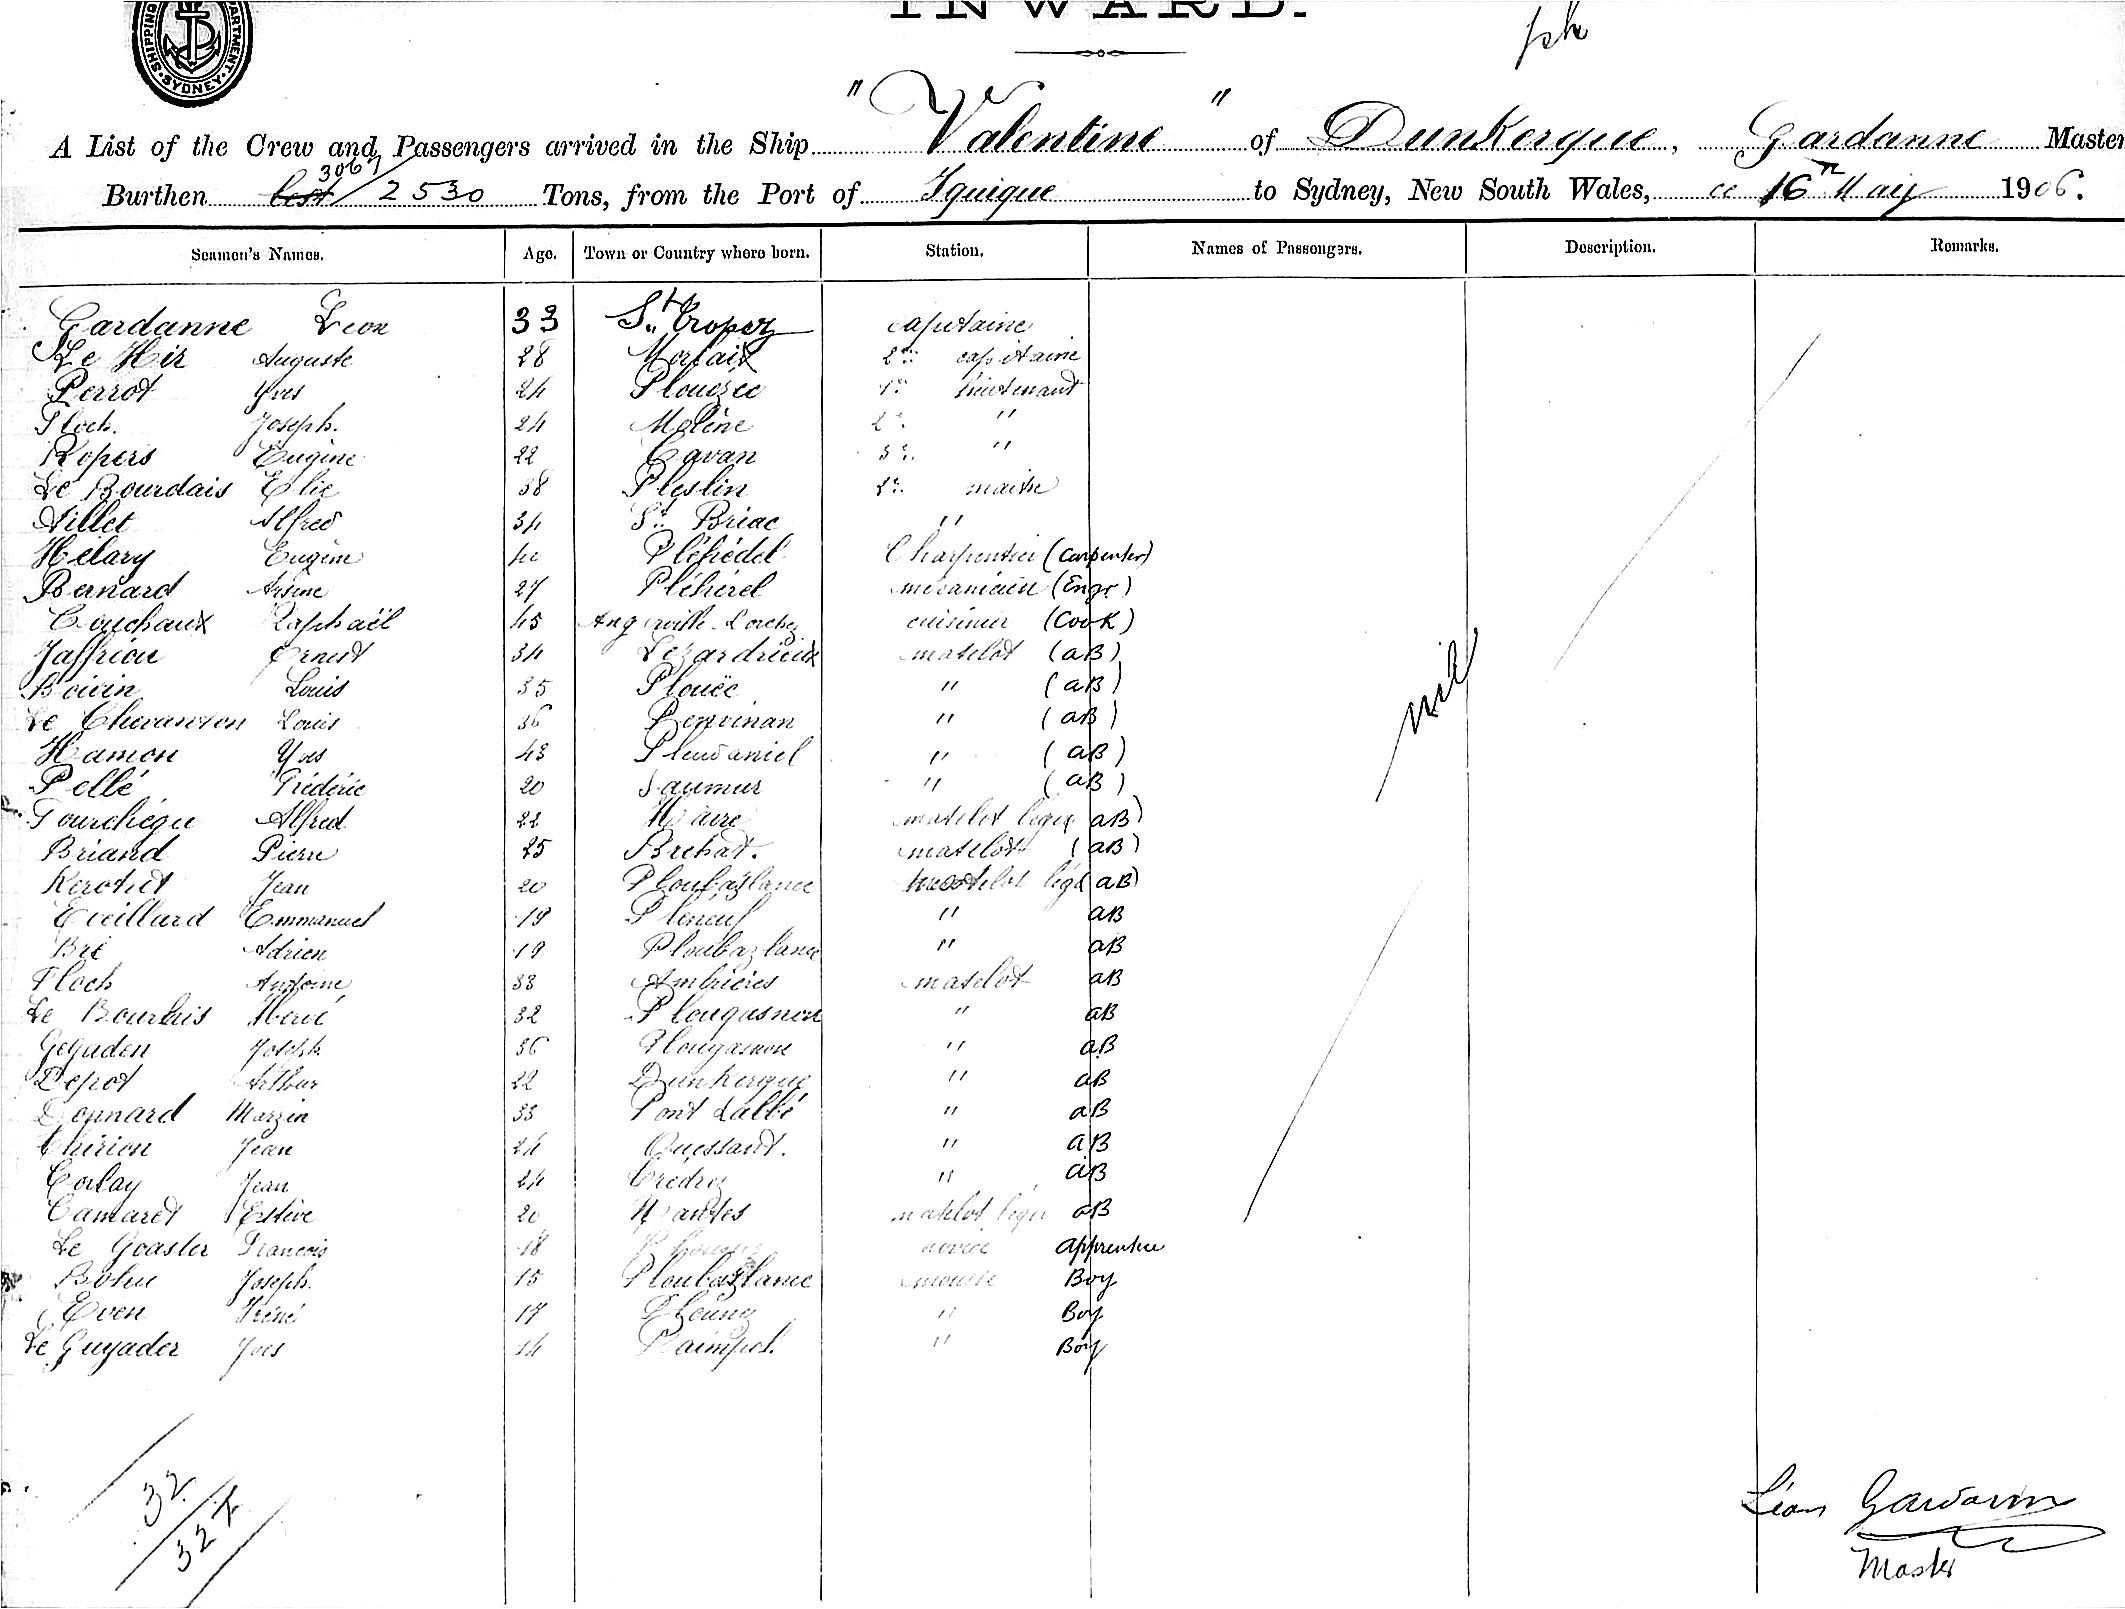 INWARD.
SHIPPING DEPARTMENT. SYDNEY
A List of the Crew and Passengers arrived in the Ship "Valentine" of Dunkerque, Gardanne Master
3067
Burthen 2530 Tons, from the Port of Iquique to Sydney, New South Wales, 16th May 1906.
Seamen's Names. Age. Town or Country where born. Station. Names of Passengers. Description. Remarks.
Gardanne Léon 33 St. Tropez capitaine
Le Hir Auguste 28 Morlaix 2e capitaine
Perrot Yves 24 Plouézec 1er lieutenant
Floch. Joseph. 24 Molène 2e "
Ropers Eugène 22 Cavan 3e "
Le Bourdais Elie 38 Pleslin 1er maitre
Alfred 34 St. Briac "
Hélary Eugène Pléhédel Charpentier (Carpenter)
Bernard Arsène 27 Pléhérel mécanicien (Engr)
Couchaux Raphaël 45 Angerville-Lorcher cuisinier (Cook)
Jaffriou Ernest 34 Lézardrieux matelot (AB)
Boivin Louis 35 Plouëc " (AB)
Le Chevanton Louis 36 Penvénan " (AB)
Hamon Yves 43 Pleudaniel " (AB)
Pellé Frédéric 20 Saumur " (AB)
Alfred 22 matelot léger AB)
Briand Pierre 25 Brehat. matelot (AB)
Jean 20 Ploubazlanec matelot léger (AB)
Eveillard Emmanuel 19 Pléneuf " AB
Bré Adrien 19 Ploubazlanec " AB
Floch Antoine 33 Ambrières matelot AB
Le Bourhis Hervé 32 Plougasnou " AB
Gegaden Joseph 36 Plougasnou " AB
Depot Arthur 22 Dunkerque " AB
Donnard Marzin 33 Pont Labbé " AB
Thirion Jean 24 Ouessant. " AB
Corlay Jean 24 Trédrez " AB
Camaret Estève 20 Nantes matelot léger AB
Le Goaster François 18 novice Apprentice
Bohu Joseph. 15 Ploubazlanec mousse Boy
Even Iréné 17 " Boy
Le Guyader Yves 14 Paimpol. " Boy
nil
32
32
Léon Gardanne
Master